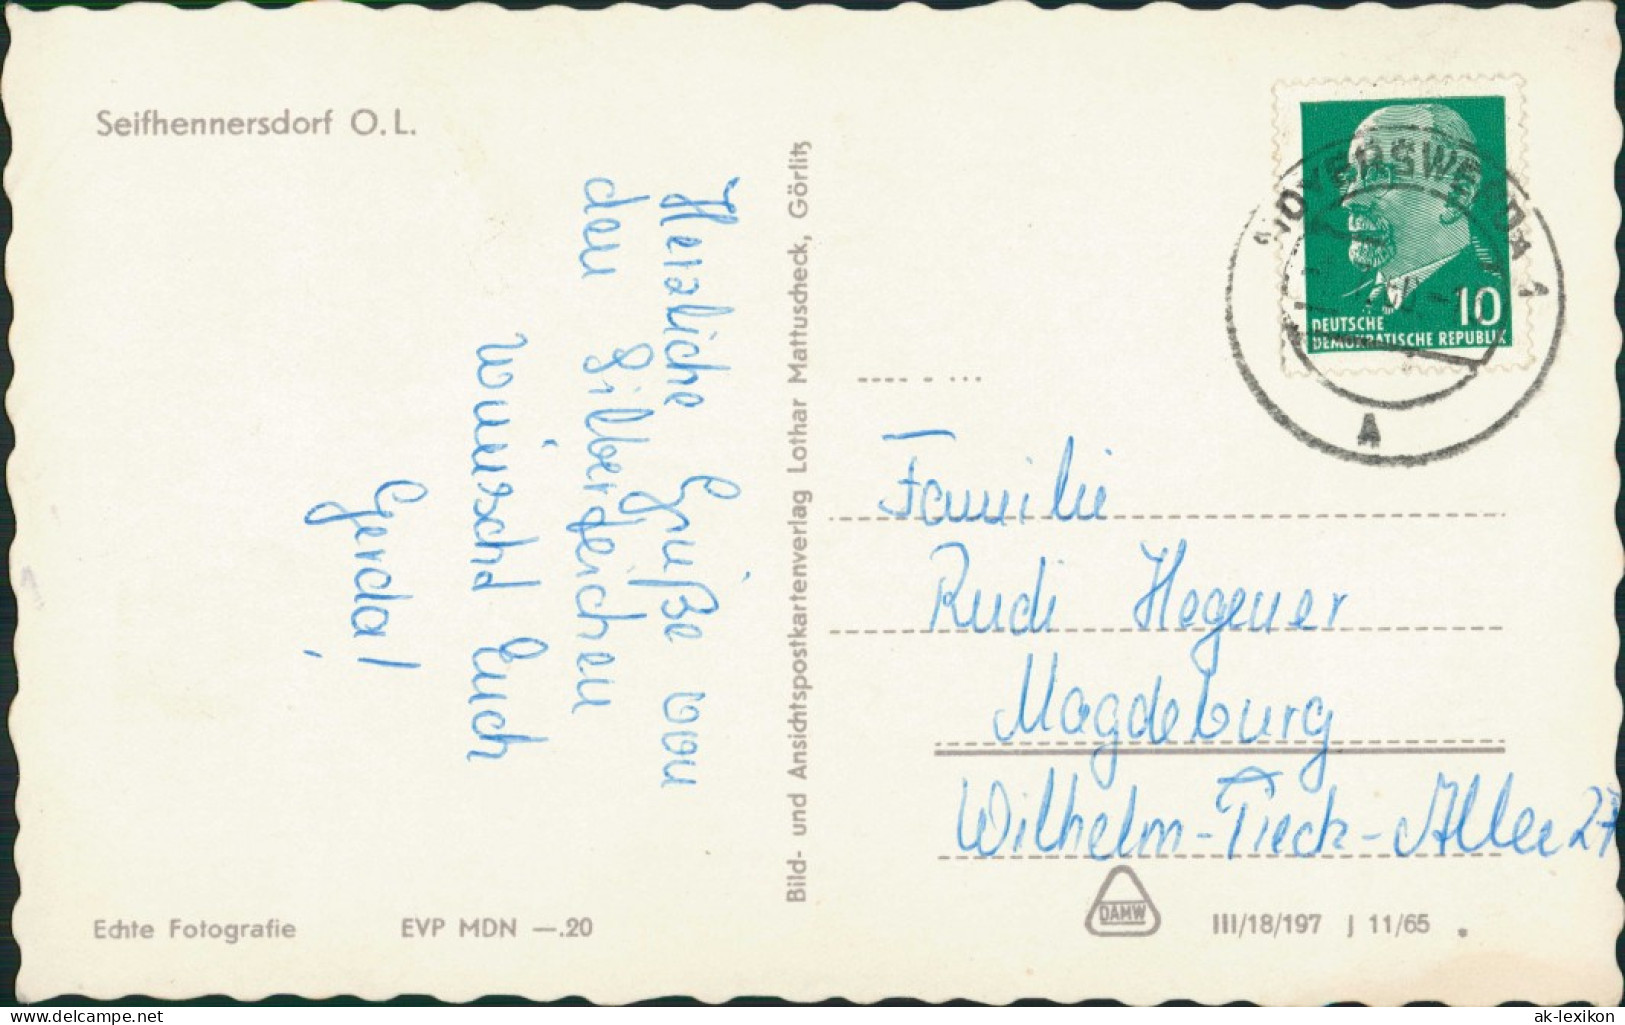 Seifhennersdorf O.L.
Herzliche Grüße von
den Silberteichen
wünscht Euch
Gerda!
Echte Fotografie EVP MDN —.20
Bild- und Ansichtspostkartenverlag Lothar Mattuscheck, Görlitz
HOYERSWERDA 1
A
10
DEUTSCHE
DEMOKRATISCHE REPUBLIK
Familie
Rudi Hegener
Magdeburg
Wilhelm-Pieck-Allee 27
DAMW
III/18/197 J 11/65
www.delcampe.net
ak-lexikon